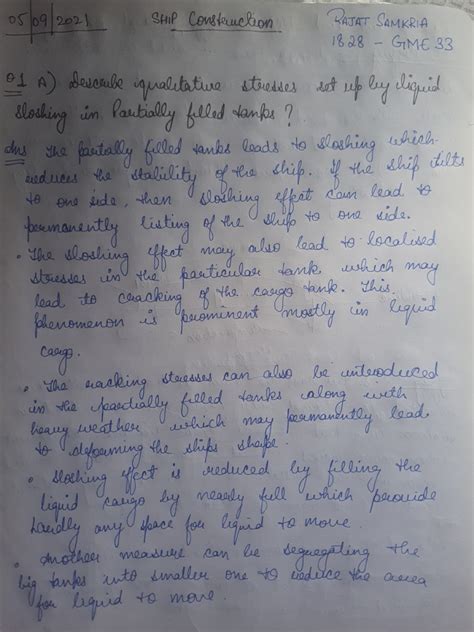 05/09/2021 SHIP Construction RAJAT SAMKRIA
1828 - GME 33
Q1 A) Describe qualitative stresses set up by liquid
sloshing in Partially filled tanks?
Ans The partally filled tanks leads to sloshing which
reduces the stability of the ship. If the ship tilts
to one side, then sloshing effect can lead to
permanently listing of the ship to one side.
• The sloshing effect may also lead to localised
stresses in the particular tank which may
lead to cracking of the cargo tank. This
phenomenon is prominent mostly in liquid
cargo.
• The racking stresses can also be introduced
in the partially filled tanks along with
heavy weather which may permanently lead
to deforming the ships shape.
• Sloshing effect is reduced by filling the
liquid cargo by nearly full which provide
hardly any space for liquid to move.
• Another measure can be segregating the
big tanks into smaller one to reduce the area
for liquid to move.